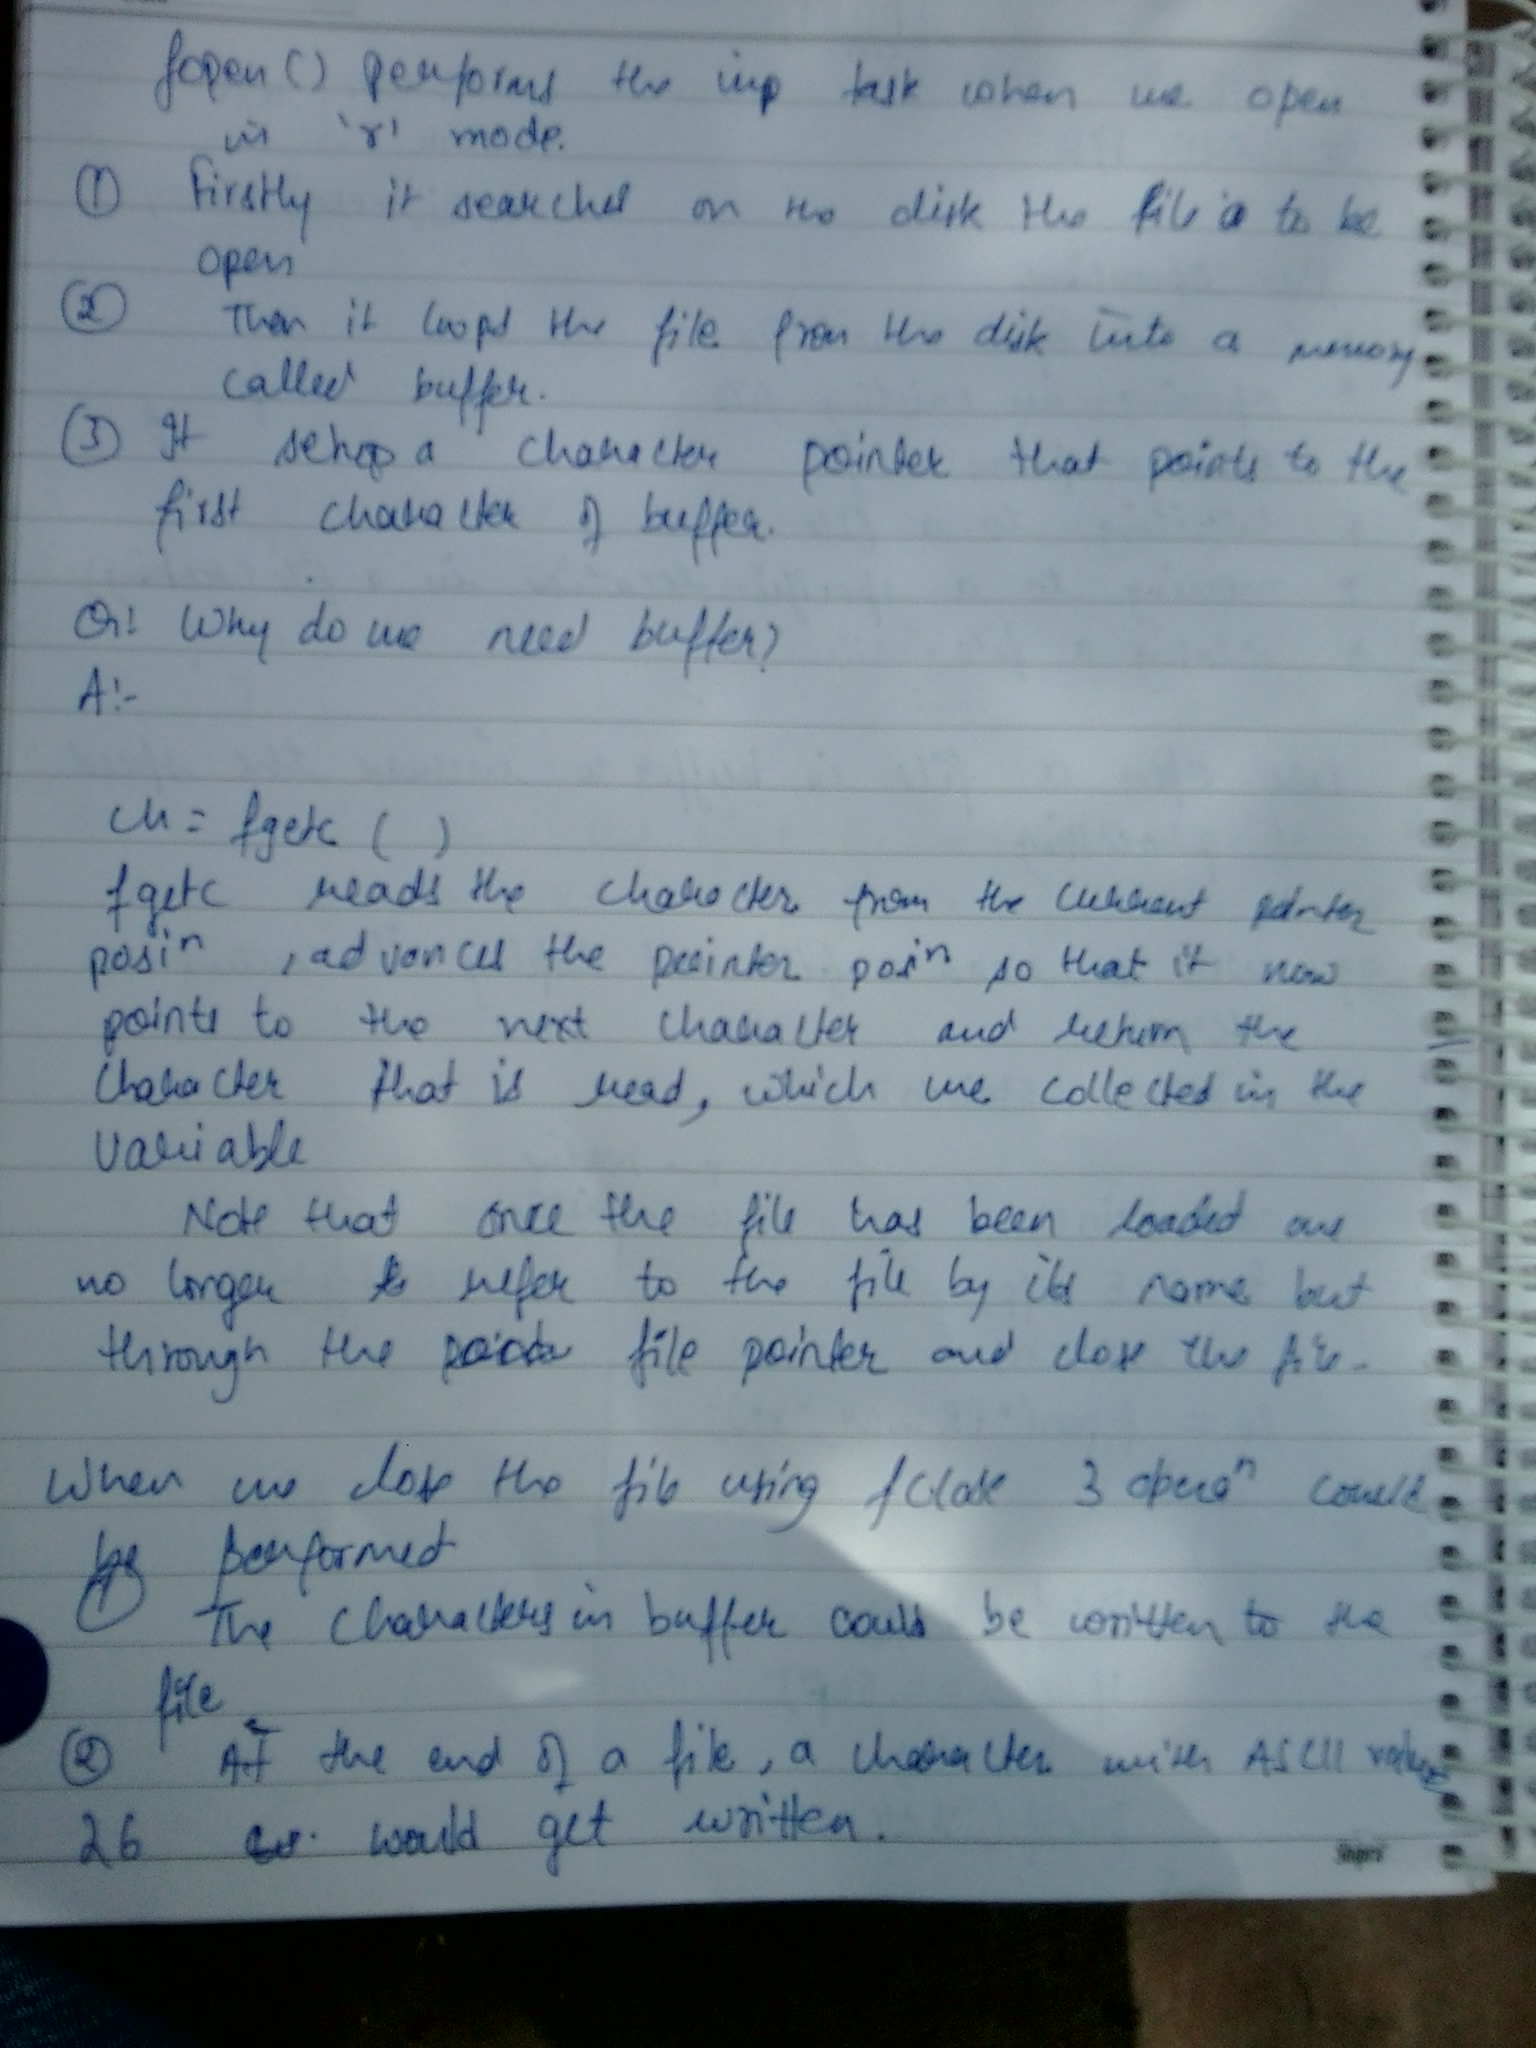 fopen() performs the imp task when we open
in 'r' mode.
① Firstly it searches on the disk the file to be
open
② Then it loops the file from the disk into a memory
called buffer.
③ It setup a character pointer that points to the
first character of buffer.
Q:! Why do we need buffer?
A!:-
ch = fgetc ( )
fgetc reads the character from the current pointer
posiⁿ , advances the pointer posiⁿ so that it now
points to the next character and return the
character that is read, which we collected in the
variable
Note that once the file has been loaded we
no longer refer to the file by its name but
through the file pointer and close the file.
When we close the file using fclose 3 operaⁿ could
be performed
① The characters in buffer could be written to the
file
② At the end of a file, a character with ASCII value
26 would get written.